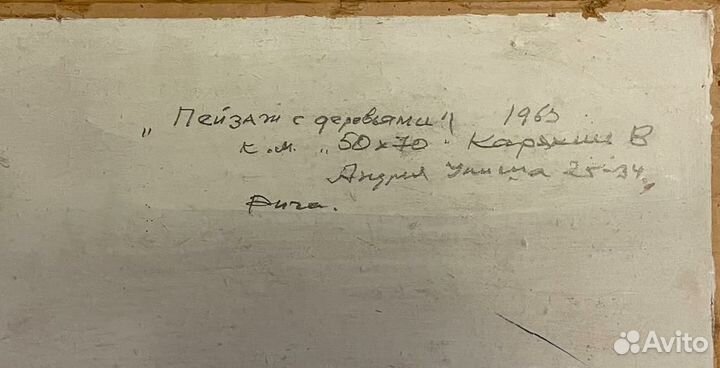 „Пейзаж с деревьями" 1965
к.м. „50х70" Карякин В
Андрея Упита 25-34.
Рига.
Avito